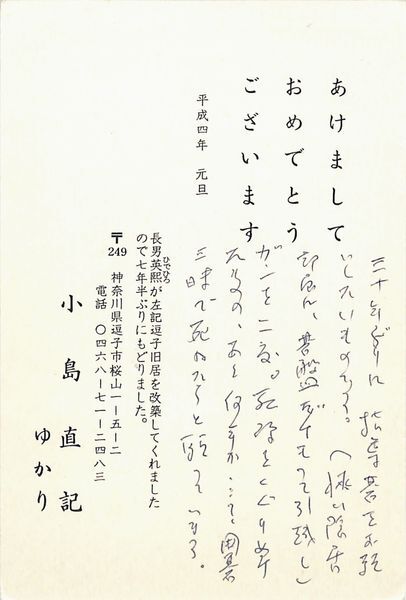 あけまして
おめでとう
ございます
平成四年　元旦
三十年ぶりに指導碁をお願
いしたいものである。へ狭い隠居
部屋へ、碁盤だけもって引越し
ガンを二度。死線をくぐりぬけ
たものの、あと何年か…で、囲碁
三昧で死にたいと願っている。
長男英熙が左記逗子旧居を改築してくれました
ひでひろ
ので七年半ぶりにもどりました。
〒249　神奈川県逗子市桜山一ー五ー二
電話　〇四六八ー七一ー二四八三
小島直記
ゆかり